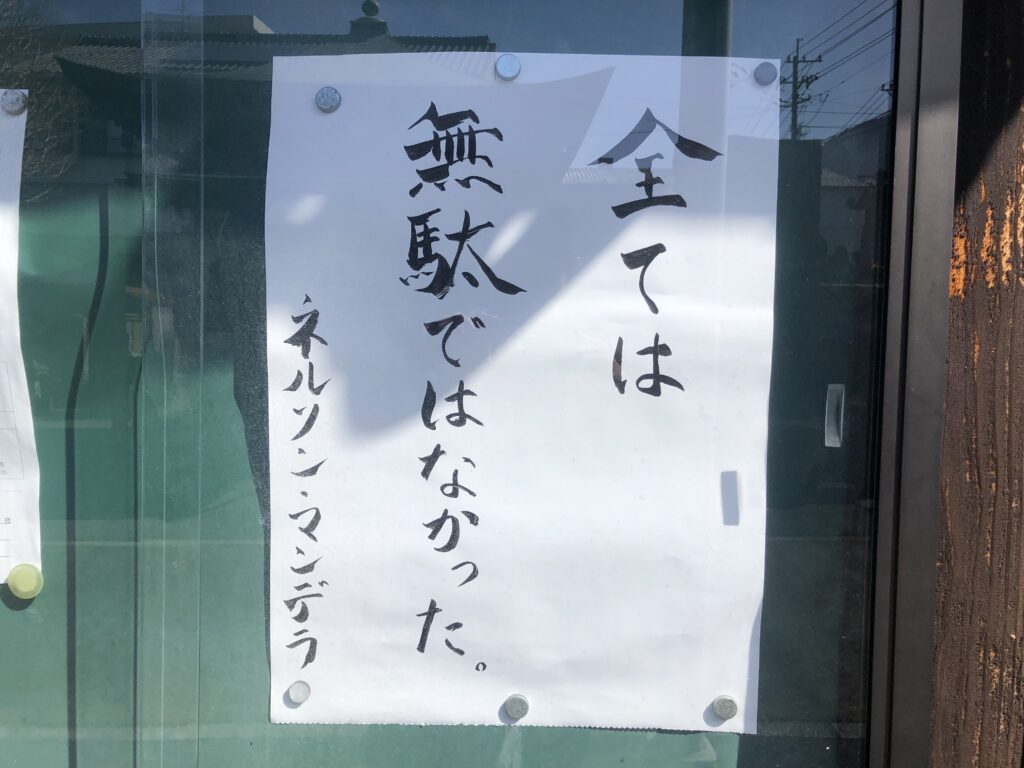 全ては
無駄ではなかった。
ネルソン・マンデラ